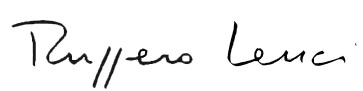 Ruggero Lenci